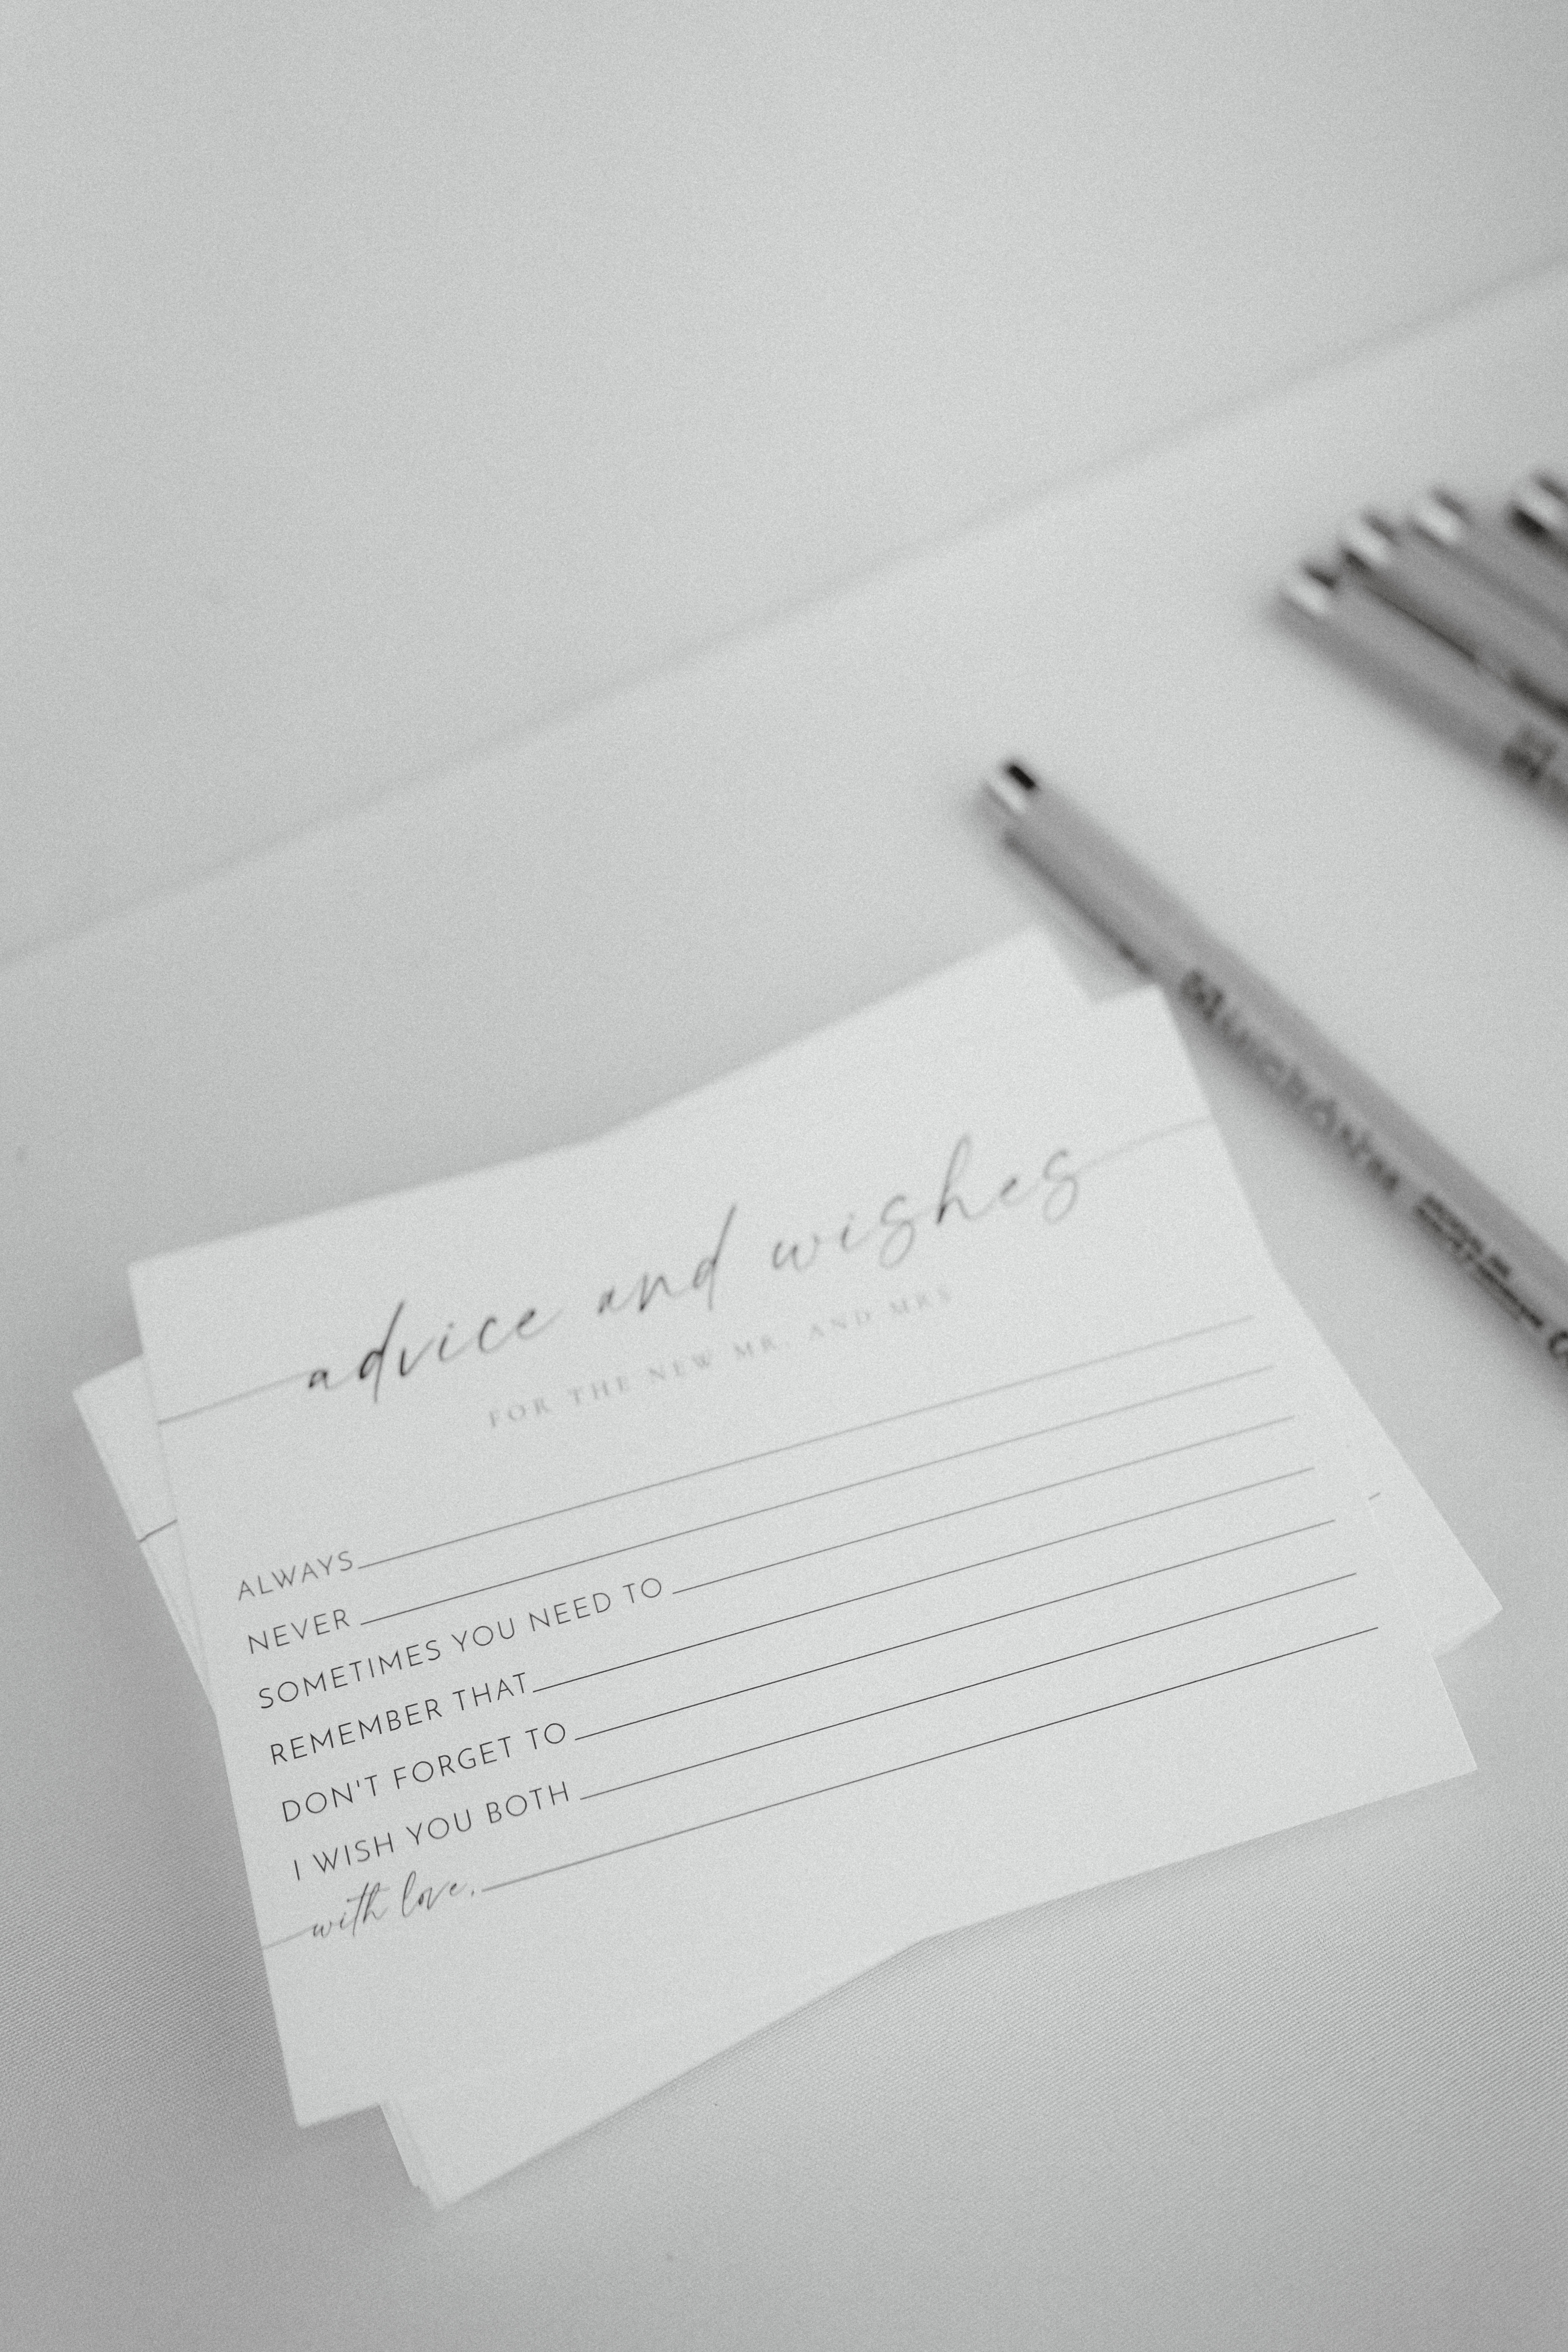 advice and wishes
FOR THE NEW MR. AND MRS
ALWAYS
NEVER
SOMETIMES YOU NEED TO
REMEMBER THAT
DON'T FORGET TO
I WISH YOU BOTH
with love,